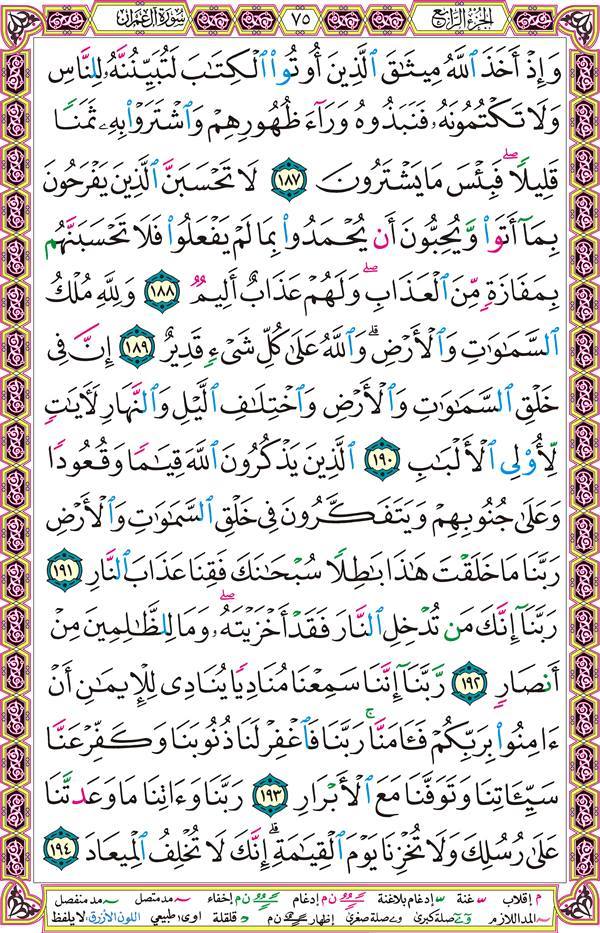 الجزء الرابع ٧٥ سورة آل عمران
وَإِذْ أَخَذَ ٱللَّهُ مِيثَٰقَ ٱلَّذِينَ أُوتُوا۟ ٱلْكِتَٰبَ لَتُبَيِّنُنَّهُۥ لِلنَّاسِ
وَلَا تَكْتُمُونَهُۥ فَنَبَذُوهُ وَرَآءَ ظُهُورِهِمْ وَٱشْتَرَوْا۟ بِهِۦ ثَمَنًا
قَلِيلًا ۖ فَبِئْسَ مَا يَشْتَرُونَ ١٨٧ لَا تَحْسَبَنَّ ٱلَّذِينَ يَفْرَحُونَ
بِمَآ أَتَوا۟ وَّيُحِبُّونَ أَن يُحْمَدُوا۟ بِمَا لَمْ يَفْعَلُوا۟ فَلَا تَحْسَبَنَّهُم
بِمَفَازَةٍ مِّنَ ٱلْعَذَابِ ۖ وَلَهُمْ عَذَابٌ أَلِيمٌ ١٨٨ وَلِلَّهِ مُلْكُ
ٱلسَّمَٰوَٰتِ وَٱلْأَرْضِ ۗ وَٱللَّهُ عَلَىٰ كُلِّ شَىْءٍ قَدِيرٌ ١٨٩ إِنَّ فِى
خَلْقِ ٱلسَّمَٰوَٰتِ وَٱلْأَرْضِ وَٱخْتِلَٰفِ ٱلَّيْلِ وَٱلنَّهَارِ لَـَٔايَٰتٍ
لِّأُو۟لِى ٱلْأَلْبَٰبِ ١٩٠ ٱلَّذِينَ يَذْكُرُونَ ٱللَّهَ قِيَٰمًا وَقُعُودًا
وَعَلَىٰ جُنُوبِهِمْ وَيَتَفَكَّرُونَ فِى خَلْقِ ٱلسَّمَٰوَٰتِ وَٱلْأَرْضِ
رَبَّنَا مَا خَلَقْتَ هَٰذَا بَٰطِلًا سُبْحَٰنَكَ فَقِنَا عَذَابَ ٱلنَّارِ ١٩١
رَبَّنَآ إِنَّكَ مَن تُدْخِلِ ٱلنَّارَ فَقَدْ أَخْزَيْتَهُۥ ۖ وَمَا لِلظَّٰلِمِينَ مِنْ
أَنصَارٍ ١٩٢ رَّبَّنَآ إِنَّنَا سَمِعْنَا مُنَادِيًا يُنَادِى لِلْإِيمَٰنِ أَنْ
ءَامِنُوا۟ بِرَبِّكُمْ فَـَٔامَنَّا ۚ رَبَّنَا فَٱغْفِرْ لَنَا ذُنُوبَنَا وَكَفِّرْ عَنَّا
سَيِّـَٔاتِنَا وَتَوَفَّنَا مَعَ ٱلْأَبْرَارِ ١٩٣ رَبَّنَا وَءَاتِنَا مَا وَعَدتَّنَا
عَلَىٰ رُسُلِكَ وَلَا تُخْزِنَا يَوْمَ ٱلْقِيَٰمَةِ ۗ إِنَّكَ لَا تُخْلِفُ ٱلْمِيعَادَ ١٩٤
م إقلاب غنة إدغام بلاغنة ن م إدغام إخفاء مد متصل مد منفصل
المد اللازم صلة كبرى صلة صغرى إظهار ن م قلقلة اوى طبيعي اللون الأزرق: لا يلفظ